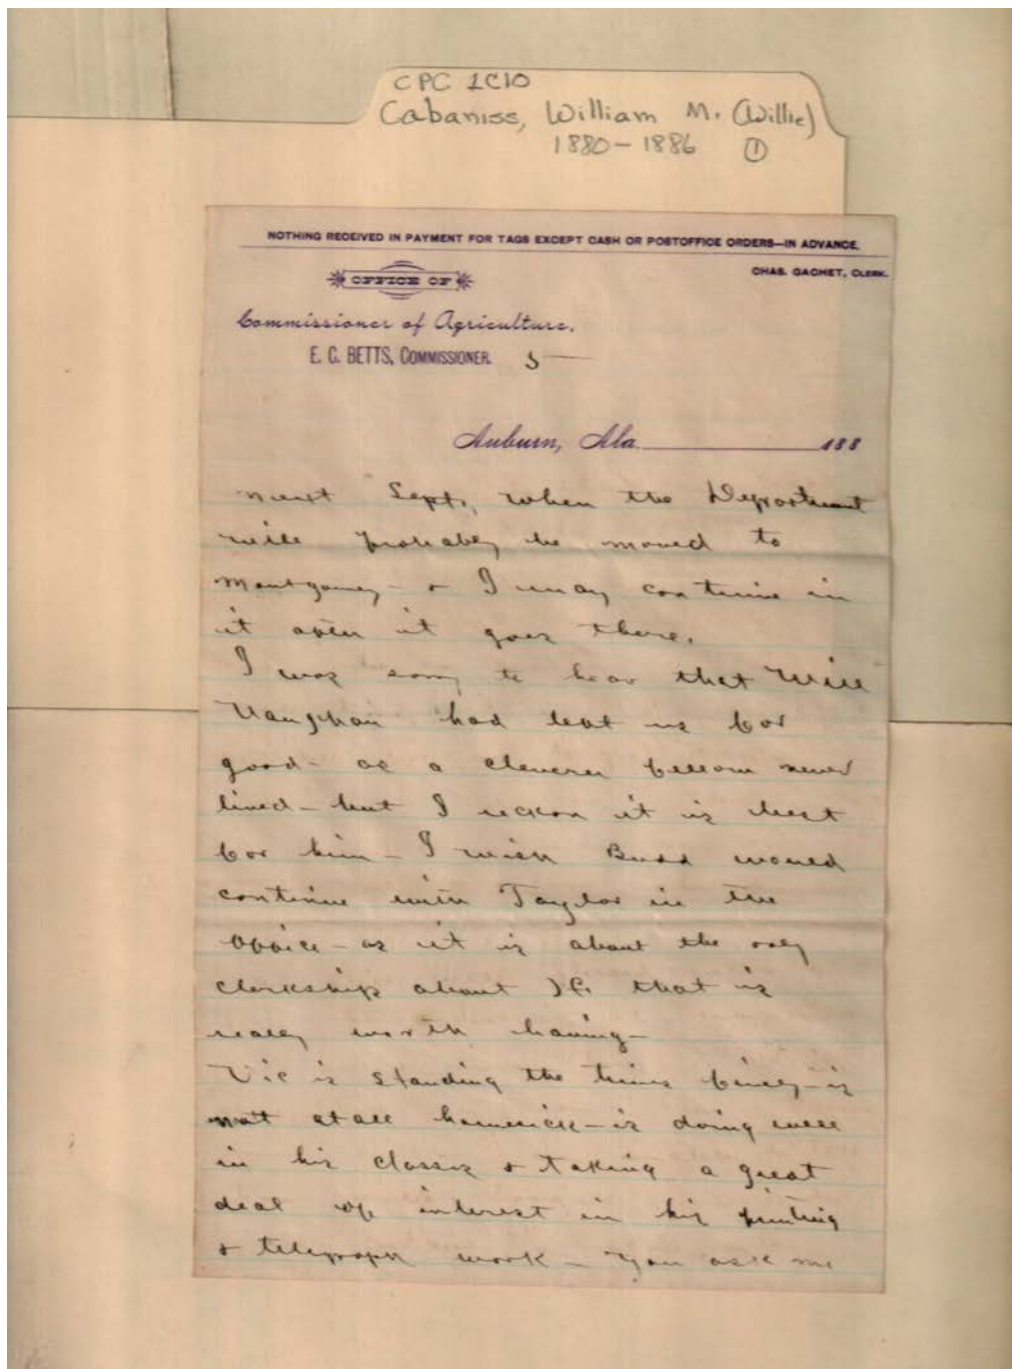 CPC 1C10
Cabaniss, William M. (Willie)
1880-1886 ①
NOTHING RECEIVED IN PAYMENT FOR TAGS EXCEPT CASH OR POSTOFFICE ORDERS—IN ADVANCE.
OFFICE OF
CHAS. GACHET, CLERK.
Commissioner of Agriculture,
E. C. BETTS, COMMISSIONER. 5—
Auburn, Ala. 188
next Sept, when the Department
will probably be moved to
Montgomey - & I may continue in
it after it goes there.
I was sorry to hear that Will
Vaughan had left us for
good - as a cleverer fellow never
lived - but I reckon it is best
for him - I wish Budd would
continue with Taylor in the
office - as it is about the only
clerkship about that is
really worth having -
Vic is standing the times finely - is
not atall homesick - is doing well
in his classes & taking a great
deal of interest in his printing
& telegraph work - You ask me